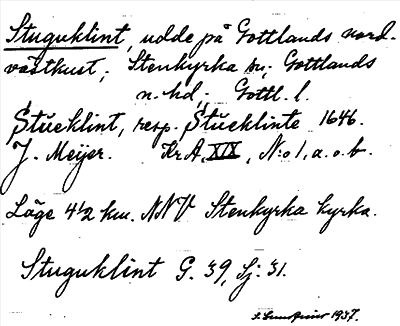 Stuguklint, udde på Gottlands nord-
västkust; Stenkyrka sn; Gottlands
n. hd; Gottl. l.
Stucklint, resp. Stucklinte 1646.
J. Meijer. Kr A, XIX, N:o 1, a. o. b.
Läge 4 1/2 km. NNV Stenkyrka kyrka.
Stuguklint G. 39, Sj. 31.
1937.